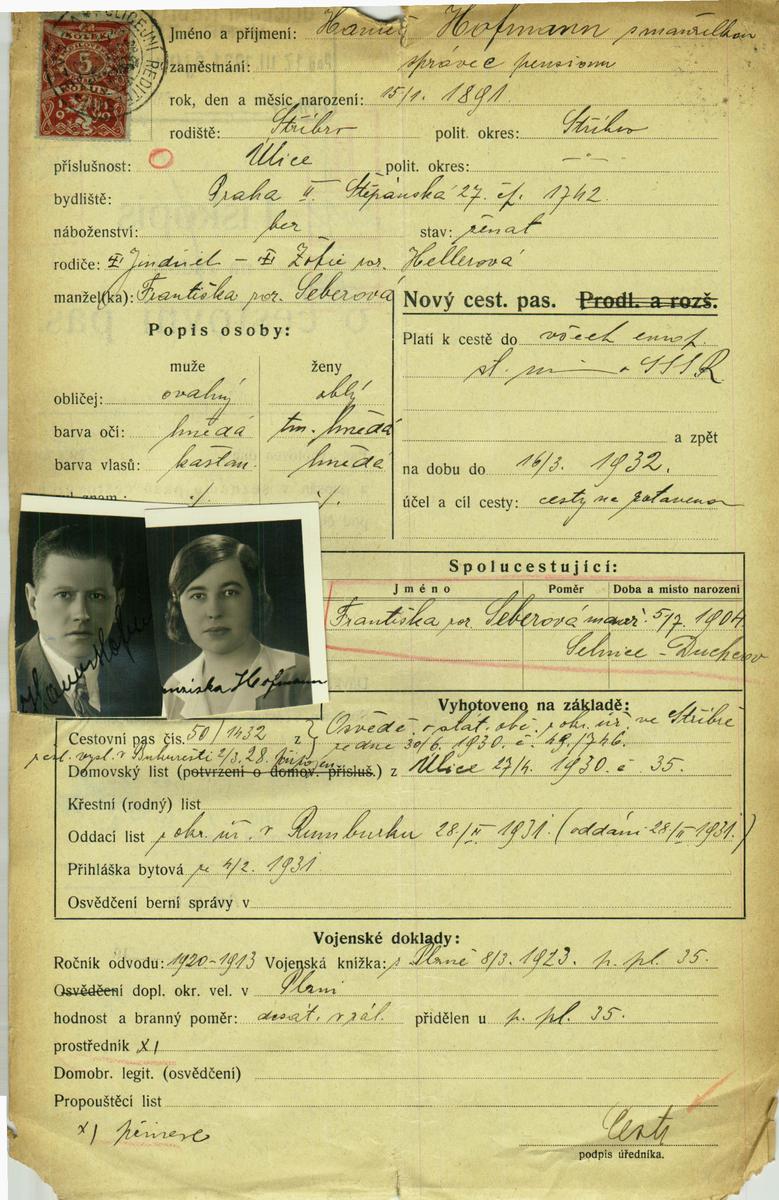 Jméno a příjmení: Hofmann s manželkou
zaměstnání: správce pensionu
rok, den a měsíc narození: 15/1. 1891.
rodiště: Stříbro polit. okres: Stříbro
příslušnost: Ulice polit. okres: - " -
bydliště: Praha II. Štěpánská 27. čp. 1742.
náboženství: bez stav: ženat
rodiče: Jindřich - Žofie roz. Hellerová
manžel(ka): Františka roz. Seberová
Nový cest. pas. Prodl. a rozš.
Popis osoby:
Platí k cestě do všech evrop.
st. mimo SSSR
muže ženy
obličej: ovalný oblý
barva očí: hnědá tm. hnědá
a zpět
barva vlasů: kaštan. hnědá
na dobu do 16/3. 1932.
zvl. znam.: ./. ./.
účel a cíl cesty: cesty na zotavenou
Spolucestující:
Jméno Poměr Doba a místo narození
Františka roz. Seberová manž. 5/7. 1904
Selnice - Duchcov
Hofmann
Vyhotoveno na základě:
Cestovní pas čís. 50/1432 z Osvěd. o stát. obč. okr. úř. ve Stříbře
ze dne 30/6. 1930. č. 49.746.
vyst. v Bukurešti 2/3. 28.
Domovský list (potvrzení o domov. přísluš.) z Ulice 27/4. 1930. č. 35.
Křestní (rodný) list
Oddací list okr. úř. v Rumburku 28/II 1931. (oddáni 28/II 1931.)
Přihláška bytová ze 4/2. 1931
Osvědčení berní správy v
Vojenské doklady:
Ročník odvodu: 1920-1913 Vojenská kniížka: z Plzně 8/3. 1923. p. pl. 35.
Osvědčení dopl. okr. vel. v Plzni
hodnost a branný poměr: desát. v zál. přidělen u p. pl. 35.
prostředník x)
Domobr. legit. (osvědčení)
Propouštěcí list
x)
podpis úředníka.